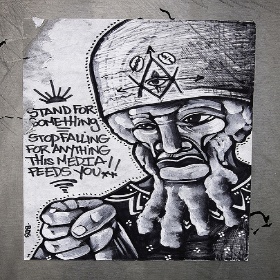 STAND FOR
SOMETHING
STOP FALLING
FOR ANYTHING
THIS MEDIA
FEEDS YOU!!